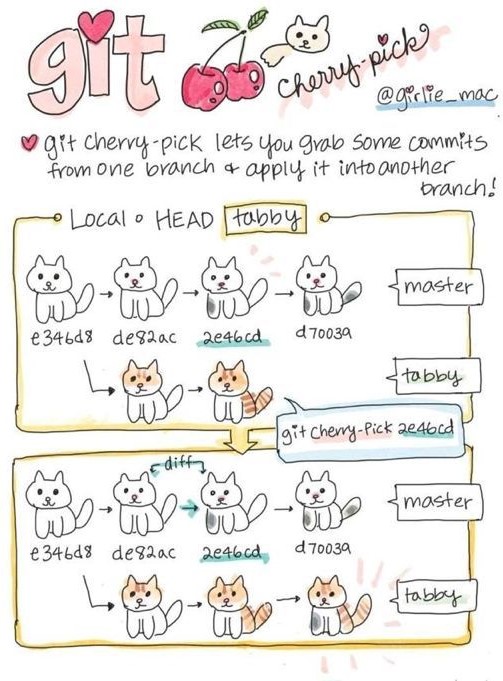 git
cherry-pick
@girlie_mac
git cherry-pick lets you grab some commits
from one branch & apply it into another
branch!
Local ∘ HEAD tabby
master
e346d8 de82ac 2e46cd d7003a
tabby
git cherry-pick 2e46cd
diff
master
e346d8 de82ac 2e46cd d7003a
tabby